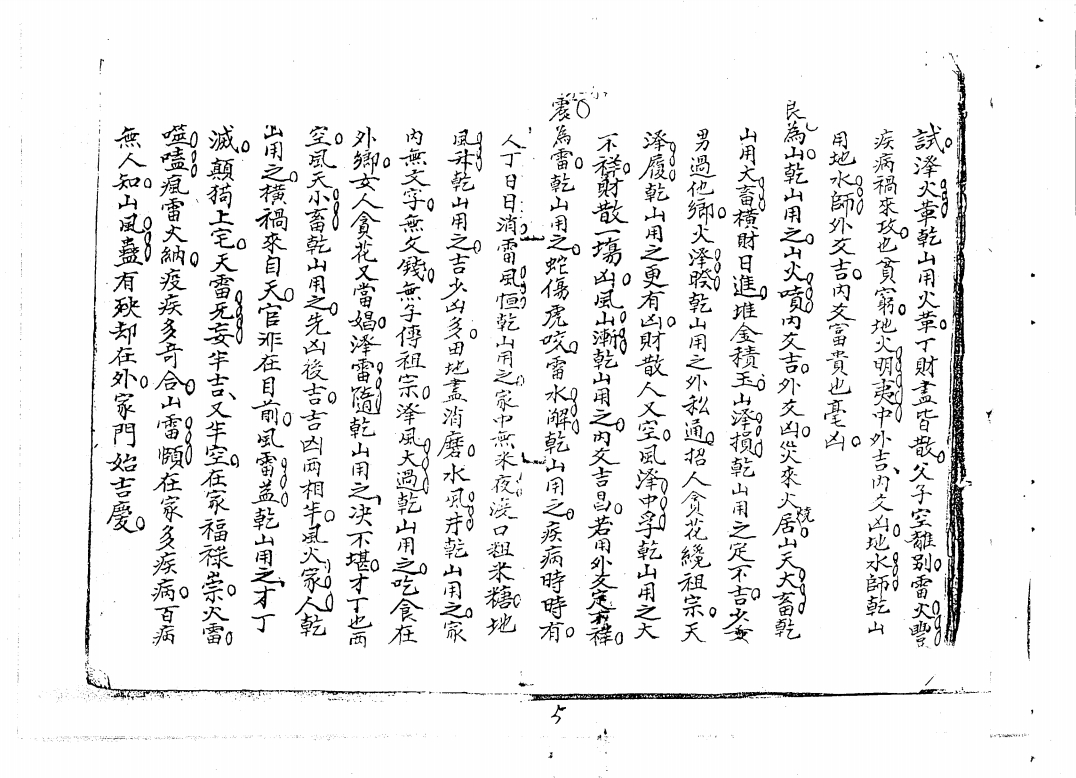 試澤火革乾山用火革丁財盡皆散父子空離別雷火豐
疾病禍來攻也貧窮地火明夷中外吉內爻凶地水師乾山
用地水師外爻吉內爻富貴也毫凶
艮為山乾山用之山火噴內爻吉外爻凶災來火燒居山天大畜乾
山用大畜橫財日進堆金積玉山澤損乾山用之定不吉少女
男過他鄉火澤睽乾山用之外私通招人貪花繞祖宗天
澤履乾山用之更有凶財散人又空風澤中孚乾山用之大
不祥財散一場凶風山漸乾山用之內爻吉昌若用外爻定不祥
震為雷乾山用之蛇傷虎咬雷水解乾山用之疾病時時有
人丁日日消雷風恒乾山用之家中無米夜沒口粗米糖地
風升乾山用之吉少凶多田地盡消磨水風井乾山用之家
內無文字無文錢無子傳祖宗澤風大過乾山用之吃食在
外鄉女人貪花又當娼澤雷隨乾山用之決不堪才丁也两
空風天小畜乾山用之先凶後吉吉凶兩相半風火家人乾
山用之橫禍來自天官非在目前風雷益乾山用之才丁
滅顛猗上宅天雷无妄半吉又半空在家福祿崇火雷
噬嗑瘋雷火納疫疾多奇合山雷頤在家多疾病百病
無人知山風蠱有殃却在外家門始吉慶
5